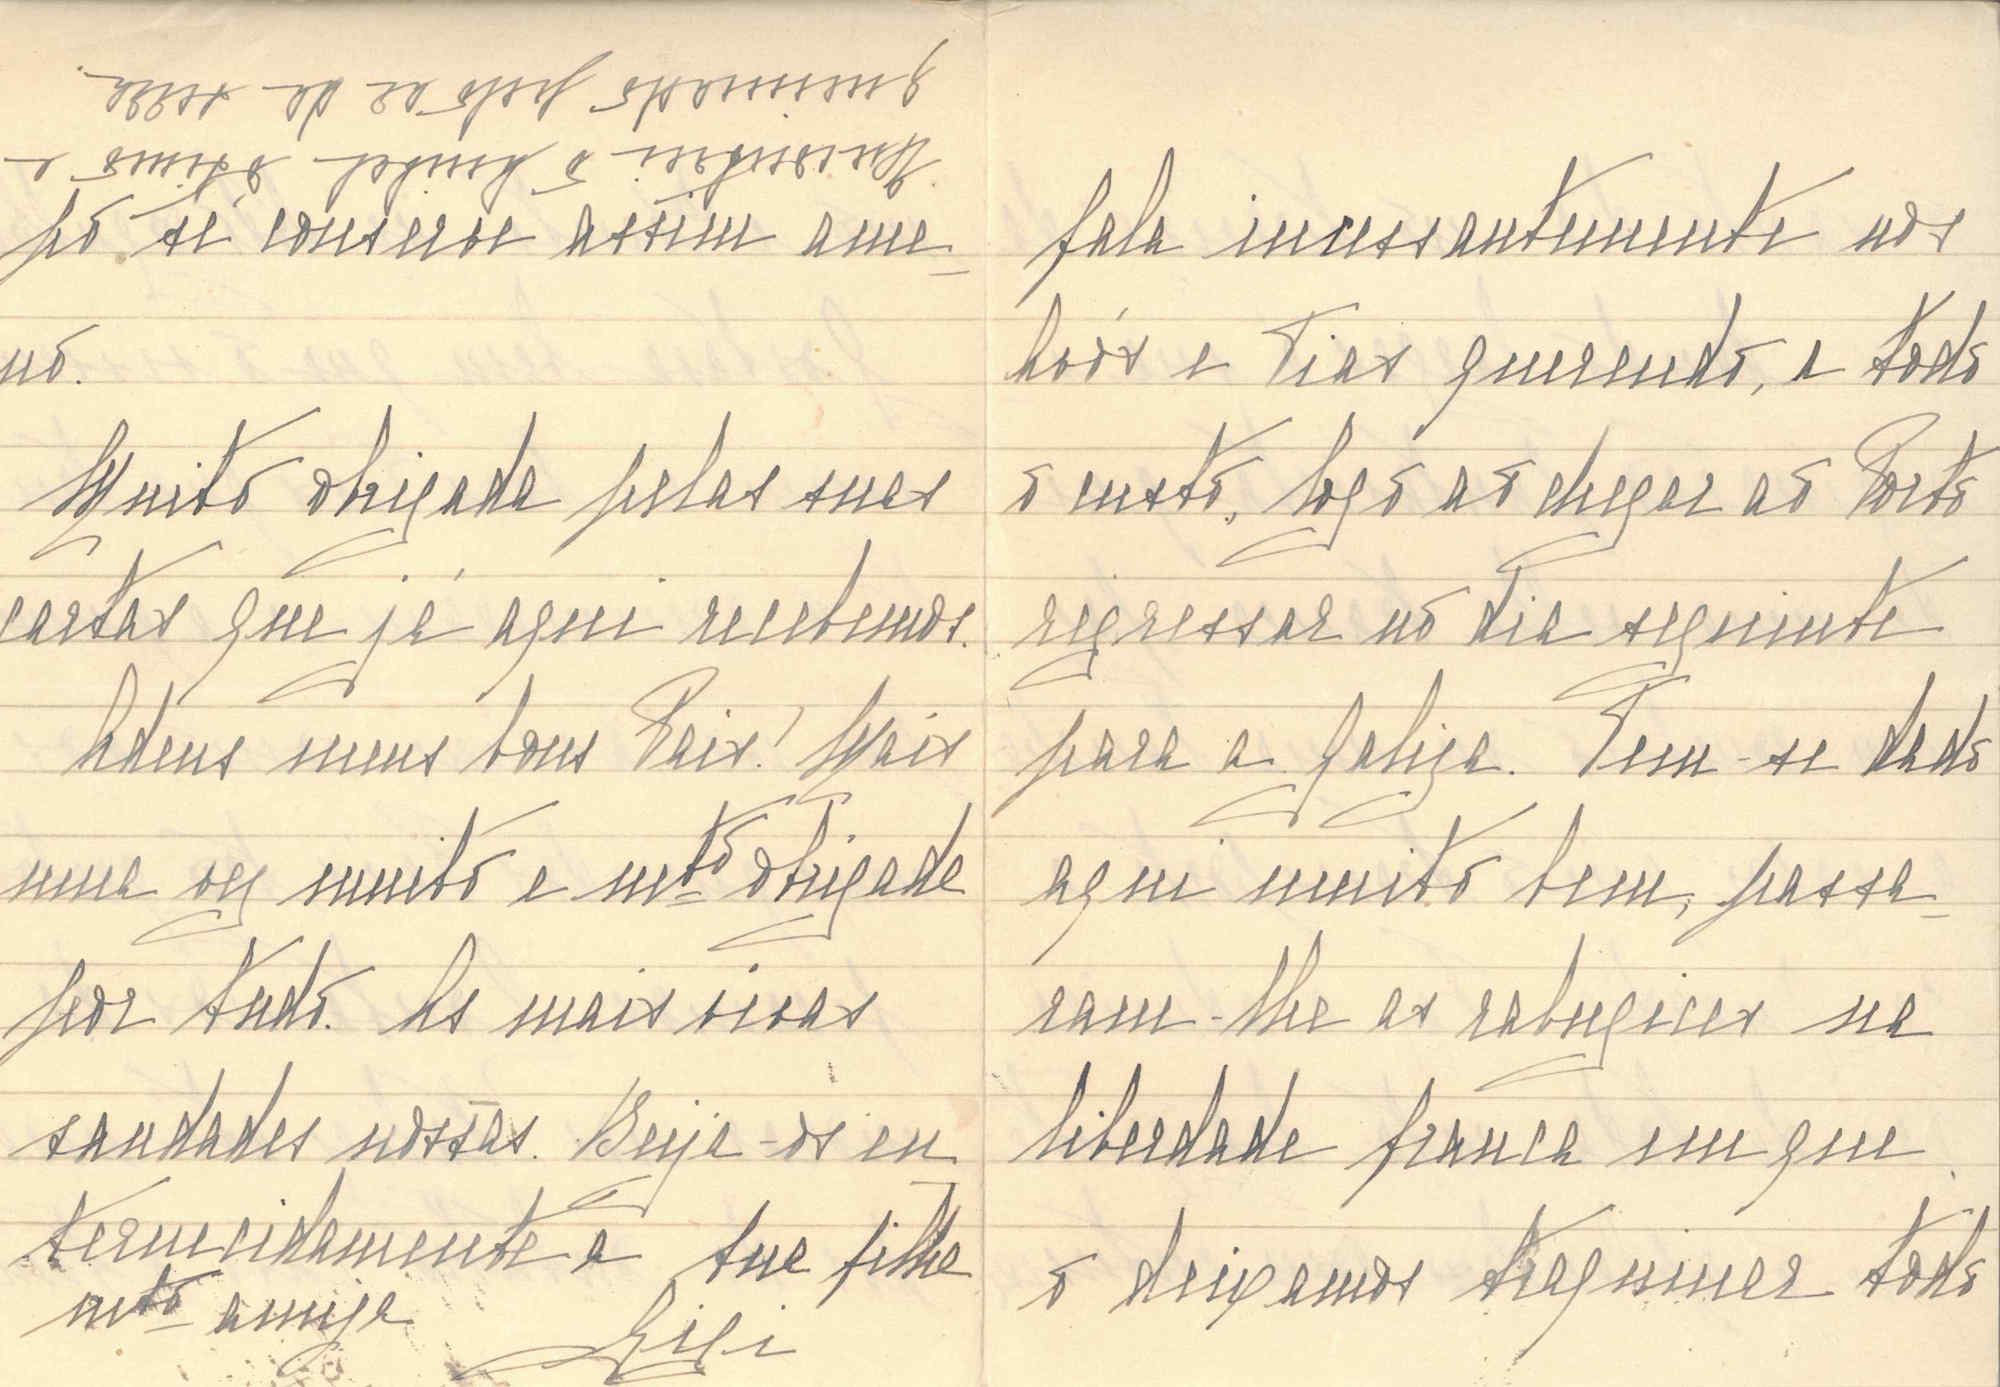 po se conserve assim ame-
no.
Muito obrigada pelas suas
cartas que já aqui recebemos.
Adeus meus bons Pais! Mais
uma vez muito e mto obrigada
por tudo. As mais vivas
saudades nossas. Beija-os en
ternecidamente a sua filha
mto amiga Gigi
Encontrei o Anibal ótimo e
queimado pelo ar da serra.
fala incessantemente nos
Avós e Tias querendo, a todo
o custo, logo ao chegar ao Porto
regressar no dia seguinte
para a Galiza. Tem-se dado
aqui muito bem, passa-
ram-lhe as rabugices na
liberdade franca em que
o deixamos traquinar todo